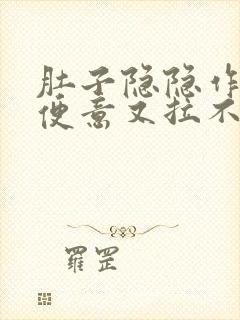 肚子隐隐作
便意又拉不
羅罡